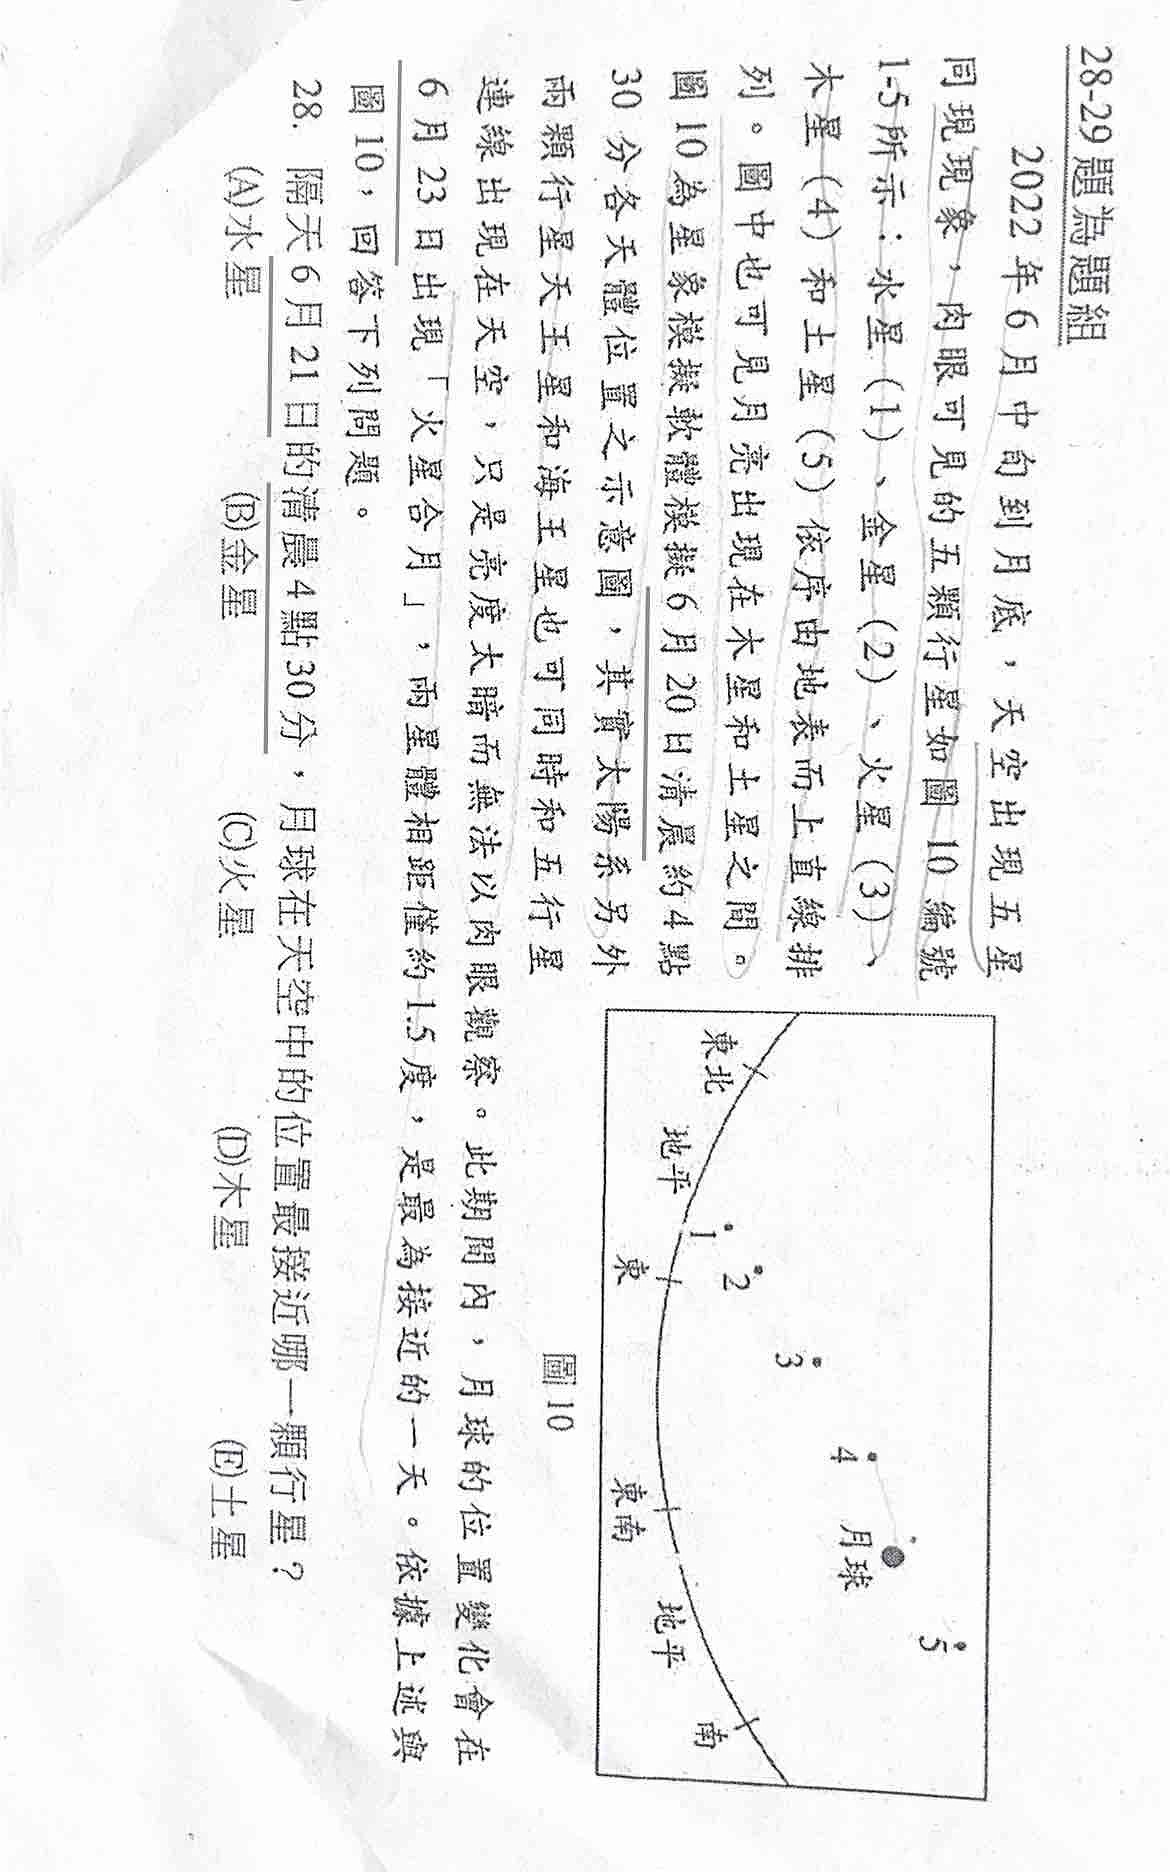 28-29題為題組
2022年6月中旬到月底，天空出現五星
同現現象，肉眼可見的五顆行星如圖10編號
1-5所示：水星（1）、金星（2）、火星（3）、
木星（4）和土星（5）依序由地表而上直線排
列。圖中也可見月亮出現在木星和土星之間。
圖10為星象模擬軟體模擬6月20日清晨約4點
30分各天體位置之示意圖，其實太陽系另外
兩顆行星天王星和海王星也可同時和五行星
連線出現在天空，只是亮度太暗而無法以肉眼觀察。此期間內，月球的位置變化會在
6月23日出現「火星合月」，兩星體相距僅約1.5度，是最為接近的一天。依據上述與
圖10，回答下列問題。
28. 隔天6月21日的清晨4點30分，月球在天空中的位置最接近哪一顆行星？
(A)水星 (B)金星 (C)火星 (D)木星 (E)土星
東北
地平
1
東
2
3
4
月球
5
東南
地平
南
圖10